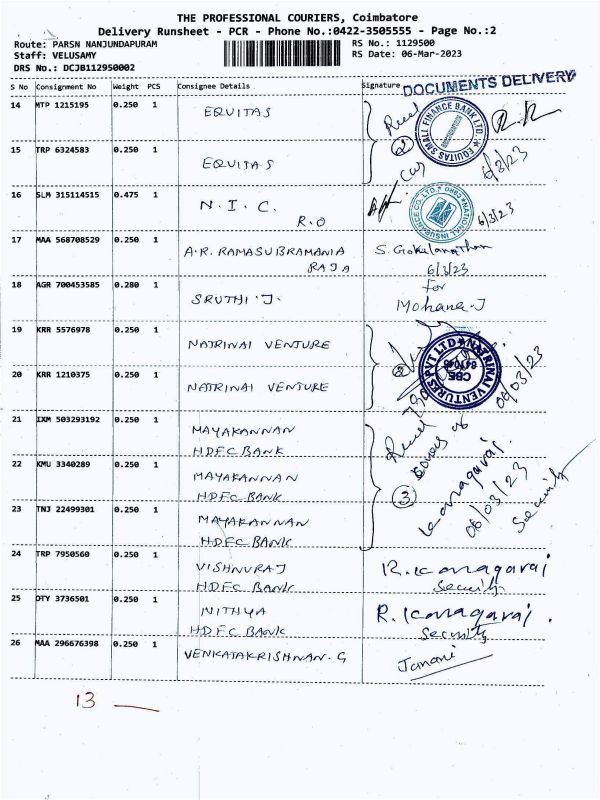 THE PROFESSIONAL COURIERS, Coimbatore
Delivery Runsheet - PCR - Phone No.:0422-3505555 - Page No.:2
Route: PARSN NANJUNDAPURAM
RS No.: 1129500
Staff: VELUSAMY
RS Date: 06-Mar-2023
DRS No.: DCJB112950002
S No Consignment No Weight PCS Consignee Details Signature
DOCUMENTS DELIVERY
14 MTP 1215195 0.250 1 EQUITAS
EQUITAS SMALL FINANCE BANK LTD.
15 TRP 6324583 0.250 1 EQUITAS
2
6/3/23
16 SLM 315114515 0.475 1 N.I.C.
R.O
NATIONAL INSURANCE CO. LTD.
6/3/23
17 MAA 568708529 0.250 1 A.R. RAMASUBRAMANIA
RAJA
S. Gokulanathan
6/3/23
18 AGR 700453585 0.280 1 SRUTHI.J.
for
Mohana.J
19 KRR 5576978 0.250 1 NATRINAI VENTURE
NATRINAI VENTURES PVT LTD
CBE
641045
20 KRR 1210375 0.250 1 NATRINAI VENTURE
06/03/23
21 IXM 503293192 0.250 1 MAYAKANNAN
HDFC BANK
22 KMU 3340289 0.250 1 MAYAKANNAN
HDFC BANK
23 TNJ 22499301 0.250 1 MAYAKANNAN
HDFC BANK
3
Kanagaraj.
06/03/23
Security
24 TRP 7950560 0.250 1 VISHNURAJ
HDFC BANK
R. Kanagaraj
Security
25 DTY 3736501 0.250 1 NITHYA
HDFC BANK
R. Kanagaraj.
Security
26 MAA 296676398 0.250 1 VENKATAKRISHNAN.G
Janani
13